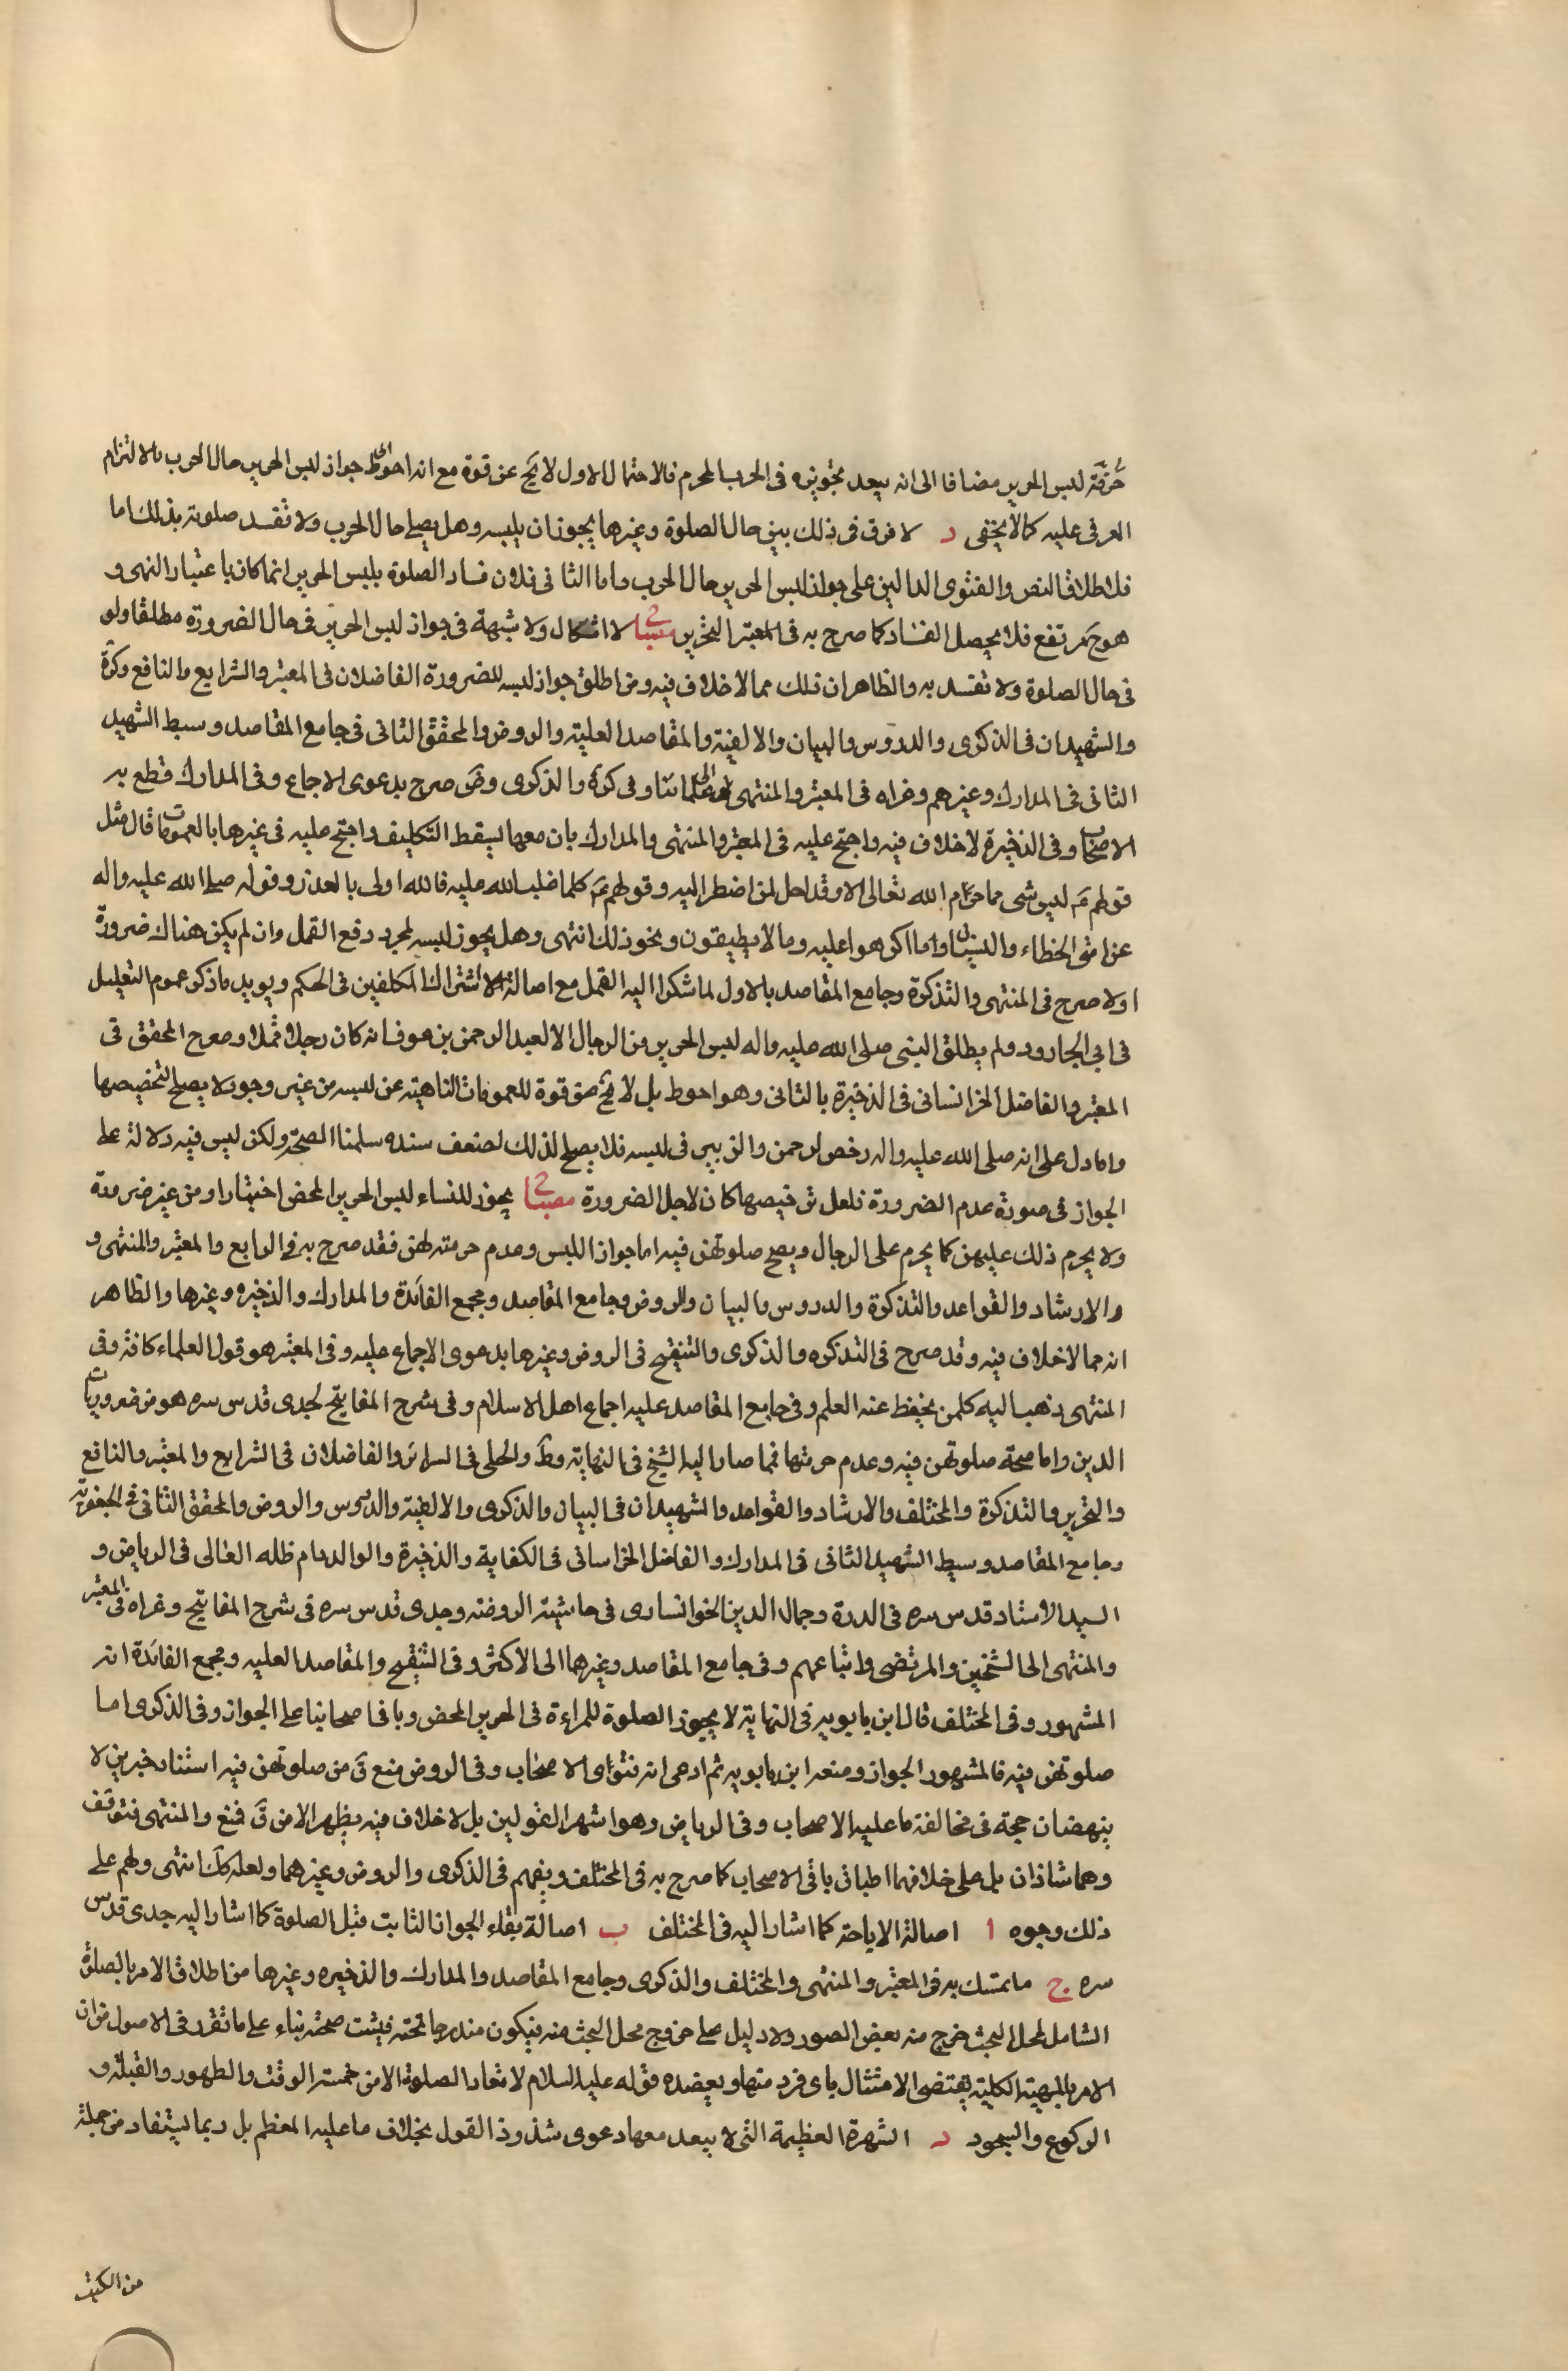 حرمة لبس الحرير مضافا الى انه يبعد تجويزه فى الحرب المحرم فالاحتمال الاول لا يخ عن قوة مع انه احوط جواز لبس الحرير حال الحرب بالالتزام
العرفى عليه كما لا يخفى د لا فرق فى ذلك بين حال الصلوة وغيرها يجوز ان يلبسه وهل يصلى حال الحرب ولا تفسد صلوته بذلك اما
فلاطلاق النص والفتوى الدالين على جواز لبس الحرير حال الحرب واما الثانى فلان فساد الصلوة بلبس الحرير انما كان باعتبار النهى و
هو ح مرتفع فلا يحصل الفساد كما صرح به فى المعتبر التحرير مصباح لا اشكال ولا شبهة فى جواز لبس الحرير فى حال الضرورة مطلقا ولو
فى حال الصلوة ولا تفسد به والظاهر ان ذلك مما لا خلاف فيه ومن اطلق جواز لبسه للضرورة الفاضلان فى المعتبر والشرايع والنافع وكرة
والشهيدان فى الذكرى والدروس والبيان والالفية والمقاصد العلية والروض والمحقق الثانى فى جامع المقاصد وسبط الشهيد
الثانى فى المدارك وغيرهم وعزاه فى المعتبر والمنتهى الى علمائنا وفى كرة والذكرى وض صرح بدعوى الاجماع وفى المدارك قطع به
الاصحاب وفى الذخيرة لا خلاف فيه واحتج عليه فى المعتبر والمنتهى والمدارك بان معها يسقط التكليف واحتج عليه فى غيرها بالعمومات قال مثل
قولهم ع ليس شى مما حرم الله تعالى الا وقد احل لمن اضطر اليه وقولهم ع كلما غلب الله عليه فالله اولى بالعذر وقوله صلى الله عليه واله
عن امتى الخطاء والنسيان وما اكرهوا عليه وما لا يطيقون ونحو ذلك انتهى وهل يجوز لبسه لمجرد دفع القمل وان لم يكن هناك ضرورة
او لا صرح فى المنتهى والتذكرة وجامع المقاصد بالاول لما شكوا اليه القمل مع اصالة الاشتراك المكلفين فى الحكم ويويد ما ذكر عموم التعليل
فى ابى الجارود ولم يطلق النبى صلى الله عليه واله لبس الحرير من الرجال الا لعبد الرحمن بن عوف انه كان رجلا قملا وصرح المحقق فى
المعتبر والفاضل الخرانسانى فى الذخيرة بالثانى وهو احوط بل لا يخ عن قوة للعمومات الناهية عن لبسه من غير وجود لا يصلح لتخصيصها
واما دل على انه صلى الله عليه واله رخص لرحمن والزبير فى لبسه فلا يصلح لذلك لضعف سنده سلمنا الصحة ولكن ليس فيه دلالة على
الجواز فى صورة عدم الضرورة فلعل ترخيصها كان لاجل الضرورة مصباح يجوز للنساء لبس الحرير المحض اختيارا ومن غير ضرورة
ولا يحرم ذلك عليهن كما يحرم على الرجال ويصح صلوتهن فيه اما جواز اللبس وعدم حرمته لهن فقد صرح به فى الرايع والمعتبر والمنتهى و
والارشاد والقواعد والتذكرة والدروس والبيان والروض وجامع المقاصد ومجمع الفائدة والمدارك والذخيره وغيرها والظاهر
انه مما لا خلاف فيه وقد صرح فى التذكره والذكرى والتنقيح فى الروض وغيرها بدعوى الاجماع عليه وفى المعتبر هو قول العلماء كافة وفى
المنتهى ذهب اليه كلمن يحفظ عنه العلم وفى جامع المقاصد عليه اجماع اهل الاسلام وفى شرح المفاتيح لجدى قدس سره هو من ضروريات
الدين واما صحة صلوتهن فيه وعدم حرمتها فما صار اليه الشيخ فى النهاية وط والحلى فى السرائر والفاضلان فى الشرايع والمعتبر والنافع
والتحرير والتذكرة والمختلف والارشاد والقواعد والشهيدان فى البيان والذكرى والالفية والدروس والروض والمحقق الثانى فى الجعفرية
وجامع المقاصد وسبط الشهيد الثانى فى المدارك والفاضل الخراسانى فى الكفاية والذخيرة والوالد دام ظله العالى فى الرياض و
السيد الاستاد قدس سره فى الدرة وجمال الدين الخوانسارى فى حاشية الروضه وجدى قدس سره فى شرح المفاتيح وعزاه فى المعتبر
والمنتهى الى الشيخين والمرتضى واتباعهم وفى جامع المقاصد وغيرهما الى الاكثر وفى التنقيح والمقاصد العليه ومجمع الفائدة انه
المشهور وفى المختلف قال ابن بابويه فى النهاية لا يجوز الصلوة للمراءة فى الحرير المحض وباقى اصحابنا على الجواز وفى الذكرى اما
صلوتهن فيه فالمشهور الجواز ومنعه ابن بابويه ثم ادعى انه فتوى الاصحاب وفى الروض منع ق من صلوتهن فيه استناد خبرين لا
ينهضان حجة فى مخالفة ما عليه الاصحاب وفى الرياض وهو اشهر القولين بل لا خلاف فيه يظهر الا من ق فمنع والمنتهى فتوقف
وهما شاذان بل على خلافهما اطباق باقى الاصحاب كما صرح به فى المختلف ويفهم فى الذكرى والروض وغيرهما ولعله كك انتهى ولهم على
ذلك وجوه ا اصالة الاباحة كما اشار اليه فى المختلف ب اصالة بقاء الجواز الثابت قبل الصلوة كما اشار اليه جدى قدس
سره ج ما تمسك به فى المعتبر والمنتهى والمختلف والذكرى وجامع المقاصد والمدارك والذخيره وغيرها من اطلاق الامر بالصلوة
الشامل لمحل البحث خرج منه بعض الصور ولا دليل على خروج محل البحث منه فيكون مندرجا تحته فيثبت صحته بناء على ما تقرر فى الاصول من ان
الامر بالمهية الكلية يقتضى الامتثال باى فرد منها ويعضده قوله عليه السلام لا تعاد الصلوة الا من خمسة الوقت والطهور والقبلة و
الركوع والسجود د الشهرة العظيمة التى لا يبعد معها دعوى شذوذ القول بخلاف ما عليه المعظم بل ربما يستفاد من جملة
من الكتب